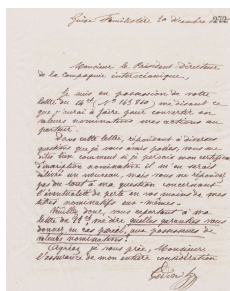 Monsieur le Président Directeur
de la Compagnie interocéanique.
Je suis en possession de votre
lettre du 14 ct, Nº 143.860, me disant ce
que j'aurai à faire pour convertir en
valeurs nominatives mes actions au
porteur.
Dans cette lettre, répondant à diverses
questions que je vous avais posées, vous me
dites bien comment si je perdais mon certificat
d'inscription nominative il m'en serait
délivré un nouveau, mais vous ne répondez
pas du tout à ma question concernant
l'éventualité de perte en vos mains de mes
titres nominatifs eux-mêmes.
Veuillez donc, vous reportant à ma
lettre du, me dire quelles garanties vous
donnez en cas pareil, aux possesseurs de
valeurs nominatives.
Agréez, je vous prie, Monsieur
l'assurance de mon entière considération